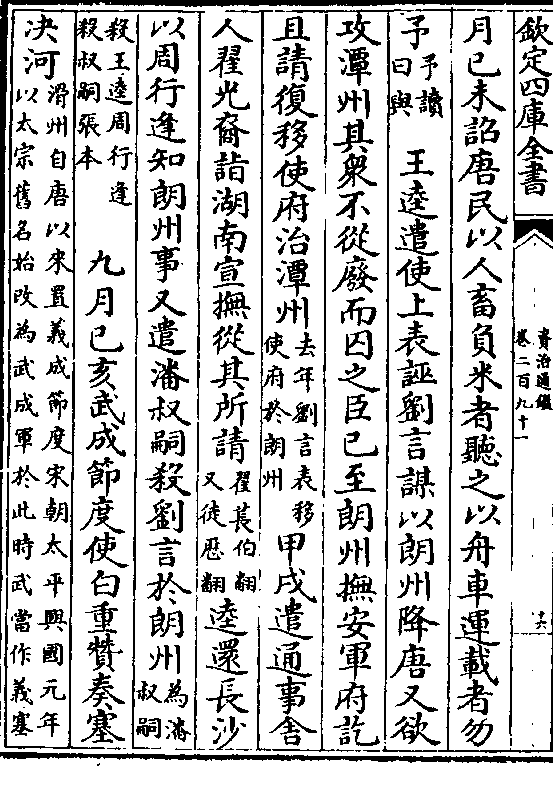 欽定四庫全書
資治通鑑
卷二百九十一
十六
月己未詔唐民以人畜負米者聽之以舟車運載者勿
予予讀
曰與
王逵遣使上表誣劉言謀以朗州降唐又欲
攻潭州其衆不從廢而囚之臣已至朗州撫安軍府訖
且請復移使府治潭州去年劉言表移
使府於朗州
甲戌遣通事舍
人翟光裔詣湖南宣撫從其所請翟萇伯翻
又徒歴翻
逵還長沙
以周行逢知朗州事又遣潘叔嗣殺劉言於朗州為潘
叔嗣
殺王逵周行逢
殺叔嗣張本
九月己亥武成節度使白重贊奏塞
决河滑州自唐以來置義成節度宋朝太平興國元年
以太宗舊名始改為武成軍於此時武當作義塞